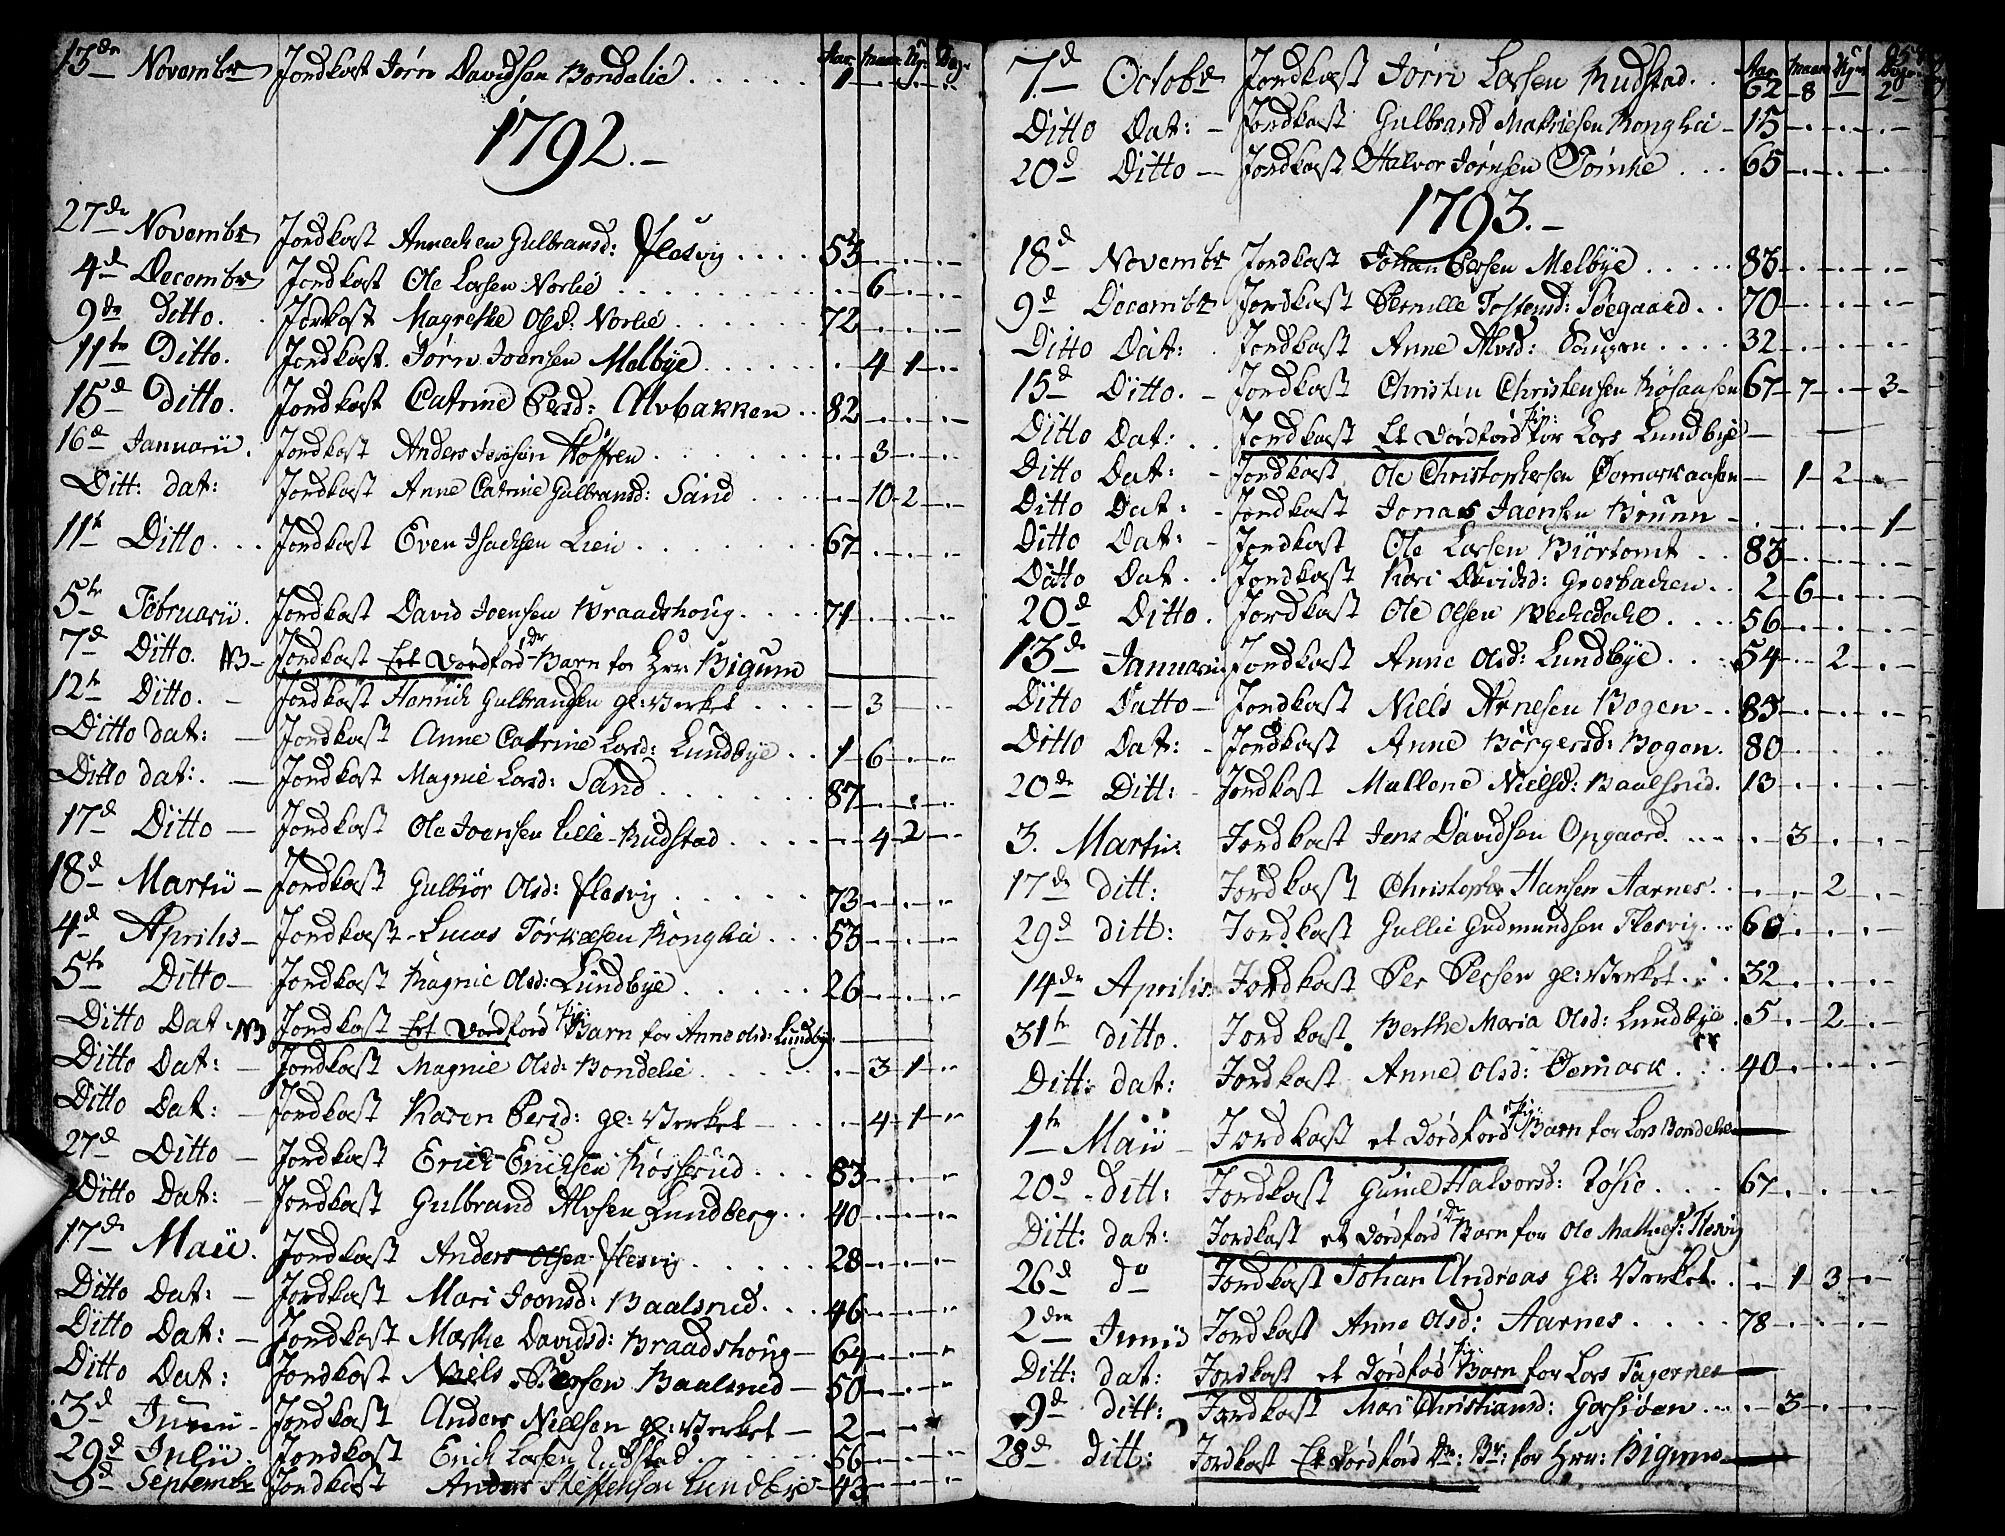 13de Novembr Jordkast Jørn Davidsen Bondelie 1
Aar Maan Ug Dag
1792.
27de Novembr Jordkast Annechen Gulbransd: Flesvig 53
4d Decembr Jordkast Ole Larsen Norlie 6
9de Ditto. Jordkast Magrethe Olsd: Norlie 72
11te Ditto. Jordkast Jørn Joensen Melbye 4 1
15d Ditto. Jordkast Catrine Persd: Alvbakken 82
16d Januarii. Jordkast Anders Høffren 3
Ditt: dat: Jordkast Anne Catrine Gulbransd: Sand 10 2
11te Ditto Jordkast Even Isachsen Lien 67
5te Februarii. Jordkast David Joensen Braadshoug 71
7d Ditto. NB Jordkast Eet Dødfød Dr Barn for Herr Bigum
12te Ditto. Jordkast Henrich Gulbransen gl: Verket 3
Ditto dat: Jordkast Anne Catrine Larsd: Lundbye 1 6
Ditto dat: Jordkast Magnie Larsd: Sand 87
17d Ditto Jordkast Ole Joensen Lille-Rudstad 4 2
18d Martii Jordkast Gulbiør Olsd: Flesvig 73
4d Aprilis Jordkast Lucas Tørkelsen Konglie 53
5te Ditto Jordkast Ragnie Olsd: Lundbye 26
Ditto Dat NB Jordkast Eet Dødfød Pig: Barn for Anne Olsd: Lundbye
Ditto Dat: Jordkast Magnie Olsd: Bondelie 3 1
Ditto Dat: Jordkast Karen Persd: gl: Verket 4 1
27d Ditto Jordkast Erich Erichsen Kosserud 83
Ditto Dat: Jordkast Gulbrand Alvsen Lundberg 40
17de Maii. Jordkast Anders Olsen Flesvig 28
Ditto Dat: Jordkast Mari Joensd: Baalsrud 46
Ditto Dat: Jordkast Marthe Davidsd: Braadshoug 64
Ditto Dat: Jordkast Niels Persen Baalsrud 50
3d Junii Jordkast Anders Nielsen gl: Verket 2
29d Julii. Jordkast Erich Larsen Rudstad 56
9d Septembr Jordkast Anders Steffensen Lundbye 43
Aar Maan Ug Dage
7d Octobr Jordkast Jørn Larsen Rudstad 62 8 2
Ditto Dat: Jordkast Gulbrand Mathiesen Konglie 15
20d Ditto Jordkast Halvor Jørnsen 65
1793.
18d Novembr Jordkast Johan Persen Melbye 83
9d Decembr Jordkast Pernille Tostensd: Søegaard 70
Ditto Dat: Jordkast Anne Alvsd: 32
15d Ditto. Jordkast Christen Christensen 67 7 3
Ditto Dat: Jordkast Et Dødfød Pig: for Lars Lundbye
Ditto Dat: Jordkast Ole Christophersen Ømarkaasen 1 2
Ditto Dat: Jordkast Jonas Jaensen Bruun 1
Ditto Dat: Jordkast Ole Larsen Biørtomt 83
Ditto Dat. Jordkast Kari Davidsd: Gresbachen 2 6
20d Ditto. Jordkast Ole Olsen 56
13de Januarii Jordkast Anne Olsd: Lundbye 54 2
Ditto Datto Jordkast Niels Arnesen Bogen 83
Ditto Dat: Jordkast Anne Børgersd: Bogen. 80
20de Ditt: Jordkast Mallene Nielsd: Baalsrud. 13
3. Martii: Jordkast Jens Davidsen Opgaard 3
17de ditt: Jordkast Christopher Hansen Aarnes 2
29d ditt: Jordkast Gullie Gudmundsen Flesvig 60
14de Aprilis Jordkast Per Persen gl: Verket 32
31te ditto. Jordkast Berthe Maria Olsd: Lundbye 5 2
Ditt: dat: Jordkast Anne Olsd: Ømark 40
1te Maii Jordkast et Dødfød Pig: Barn for Lars Bondelie
20d ditt: Jordkast Gunild Halvorsd: 67
Ditt: dat: Jordkast et Dødfød Dr Barn for Ole Mathies: Flesvig
26d do Jordkast Johan Andreas gl: Verket 1 3
2den Junii Jordkast Anne Olsd: Aarnes 78
Ditt: dat: Jordkast et Dødfød Pig: Barn for Lars Fagernes
9d ditt: Jordkast Mari Christiansd: 3
28d ditt: Jordkast Et Dødfød Dr: Br: for Herr: Bigum